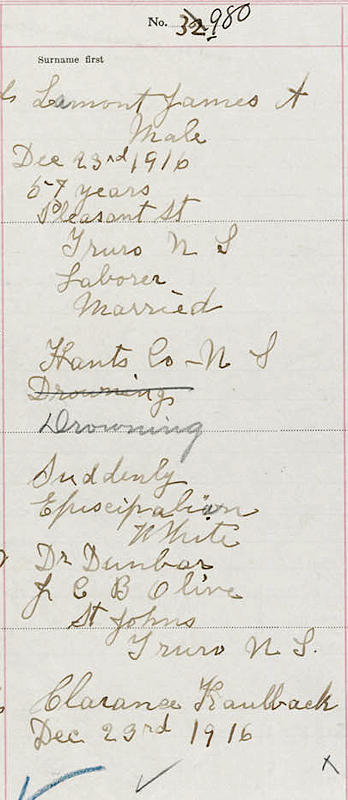 No. 32980
Surname first
Lamont James A
Male
Dec 23rd 1916
57 years
Pleasant St
Truro N S
Laborer
Married
Hants Co - N S
Drownings
Drowning
Suddenly
Episcipalian
White
Dr Dunbar
Jr C B Olive
St Johns
Truro N S.
Clarance Kaulback
Dec 23rd 1916
X